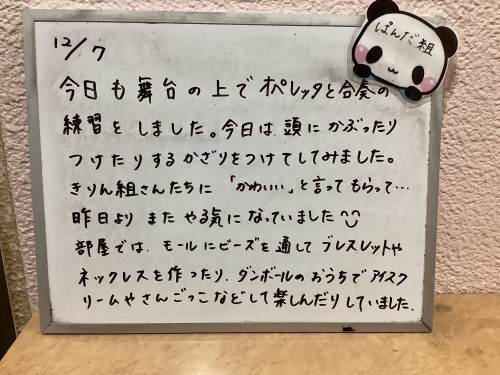 12/7
ぱんだ組
今日も舞台の上でオペレッタと合奏の
練習をしました。今日は、頭にかぶったり
つけたりするかざりをつけてしてみました。
きりん組さんたちに「かわいい」と言ってもらって…
昨日よりまたやる気になっていました^^
部屋では、モールにビーズを通してブレスレットや
ネックレスを作ったり、ダンボールのおうちでアイスク
リームやさんごっこなどして楽しんだりしていました。